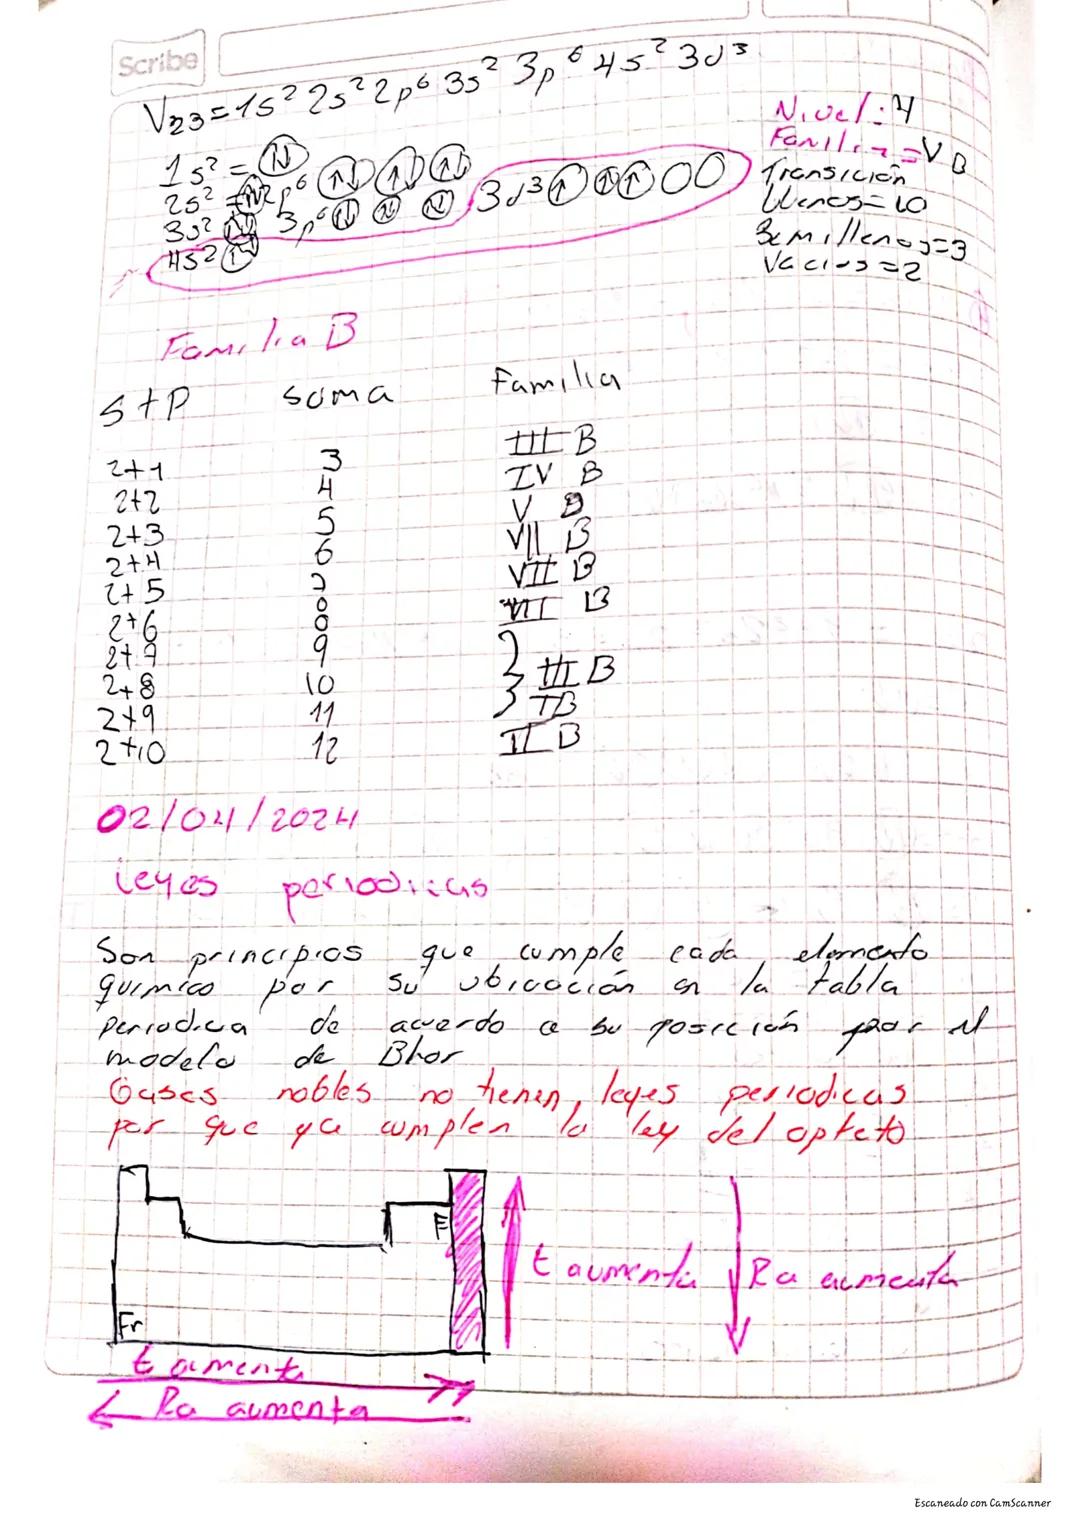 Scribe
V23=1s² 2s² 2p⁶ 3s² 3p⁶ 4s² 3d³
1s² = ↑↓
2s² = ↑↓ 2p⁶ ↑↓ ↑↓ ↑↓
3s² ↑↓ 3p⁶ ↑↓ ↑↓ ↑↓ 3d³ ↑ ↑ ↑
4s² ↑↓
Nivel: 4
Familia = V B
Transición
llenos = 10
Semillenos = 3
Vacios = 2
Familia B
S+P suma Familia
2+1 3 III B
2+2 4 IV B
2+3 5 V B
2+4 6 VII B
2+5 7 VII B
2+6 8 VIII B
2+7 9
2+8 10 III B
2+9 11 IB
2+10 12 II B
02/04/2024
leyes periodicas
Son principios que cumple cada elemento
quimico por su ubicación en la tabla
periodica de acuerdo a su posición por el
modelo de Bhor
Gases nobles no tienen leyes periodicas
por que ya cumplen la ley del opteto
F
Fr
E aumenta
Ra aumenta
E aumenta
Ra aumenta
Escaneado con CamScanner